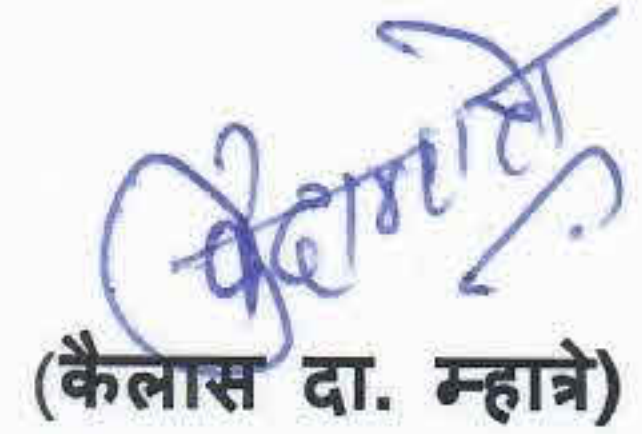 (कैलास दा. म्हात्रे)